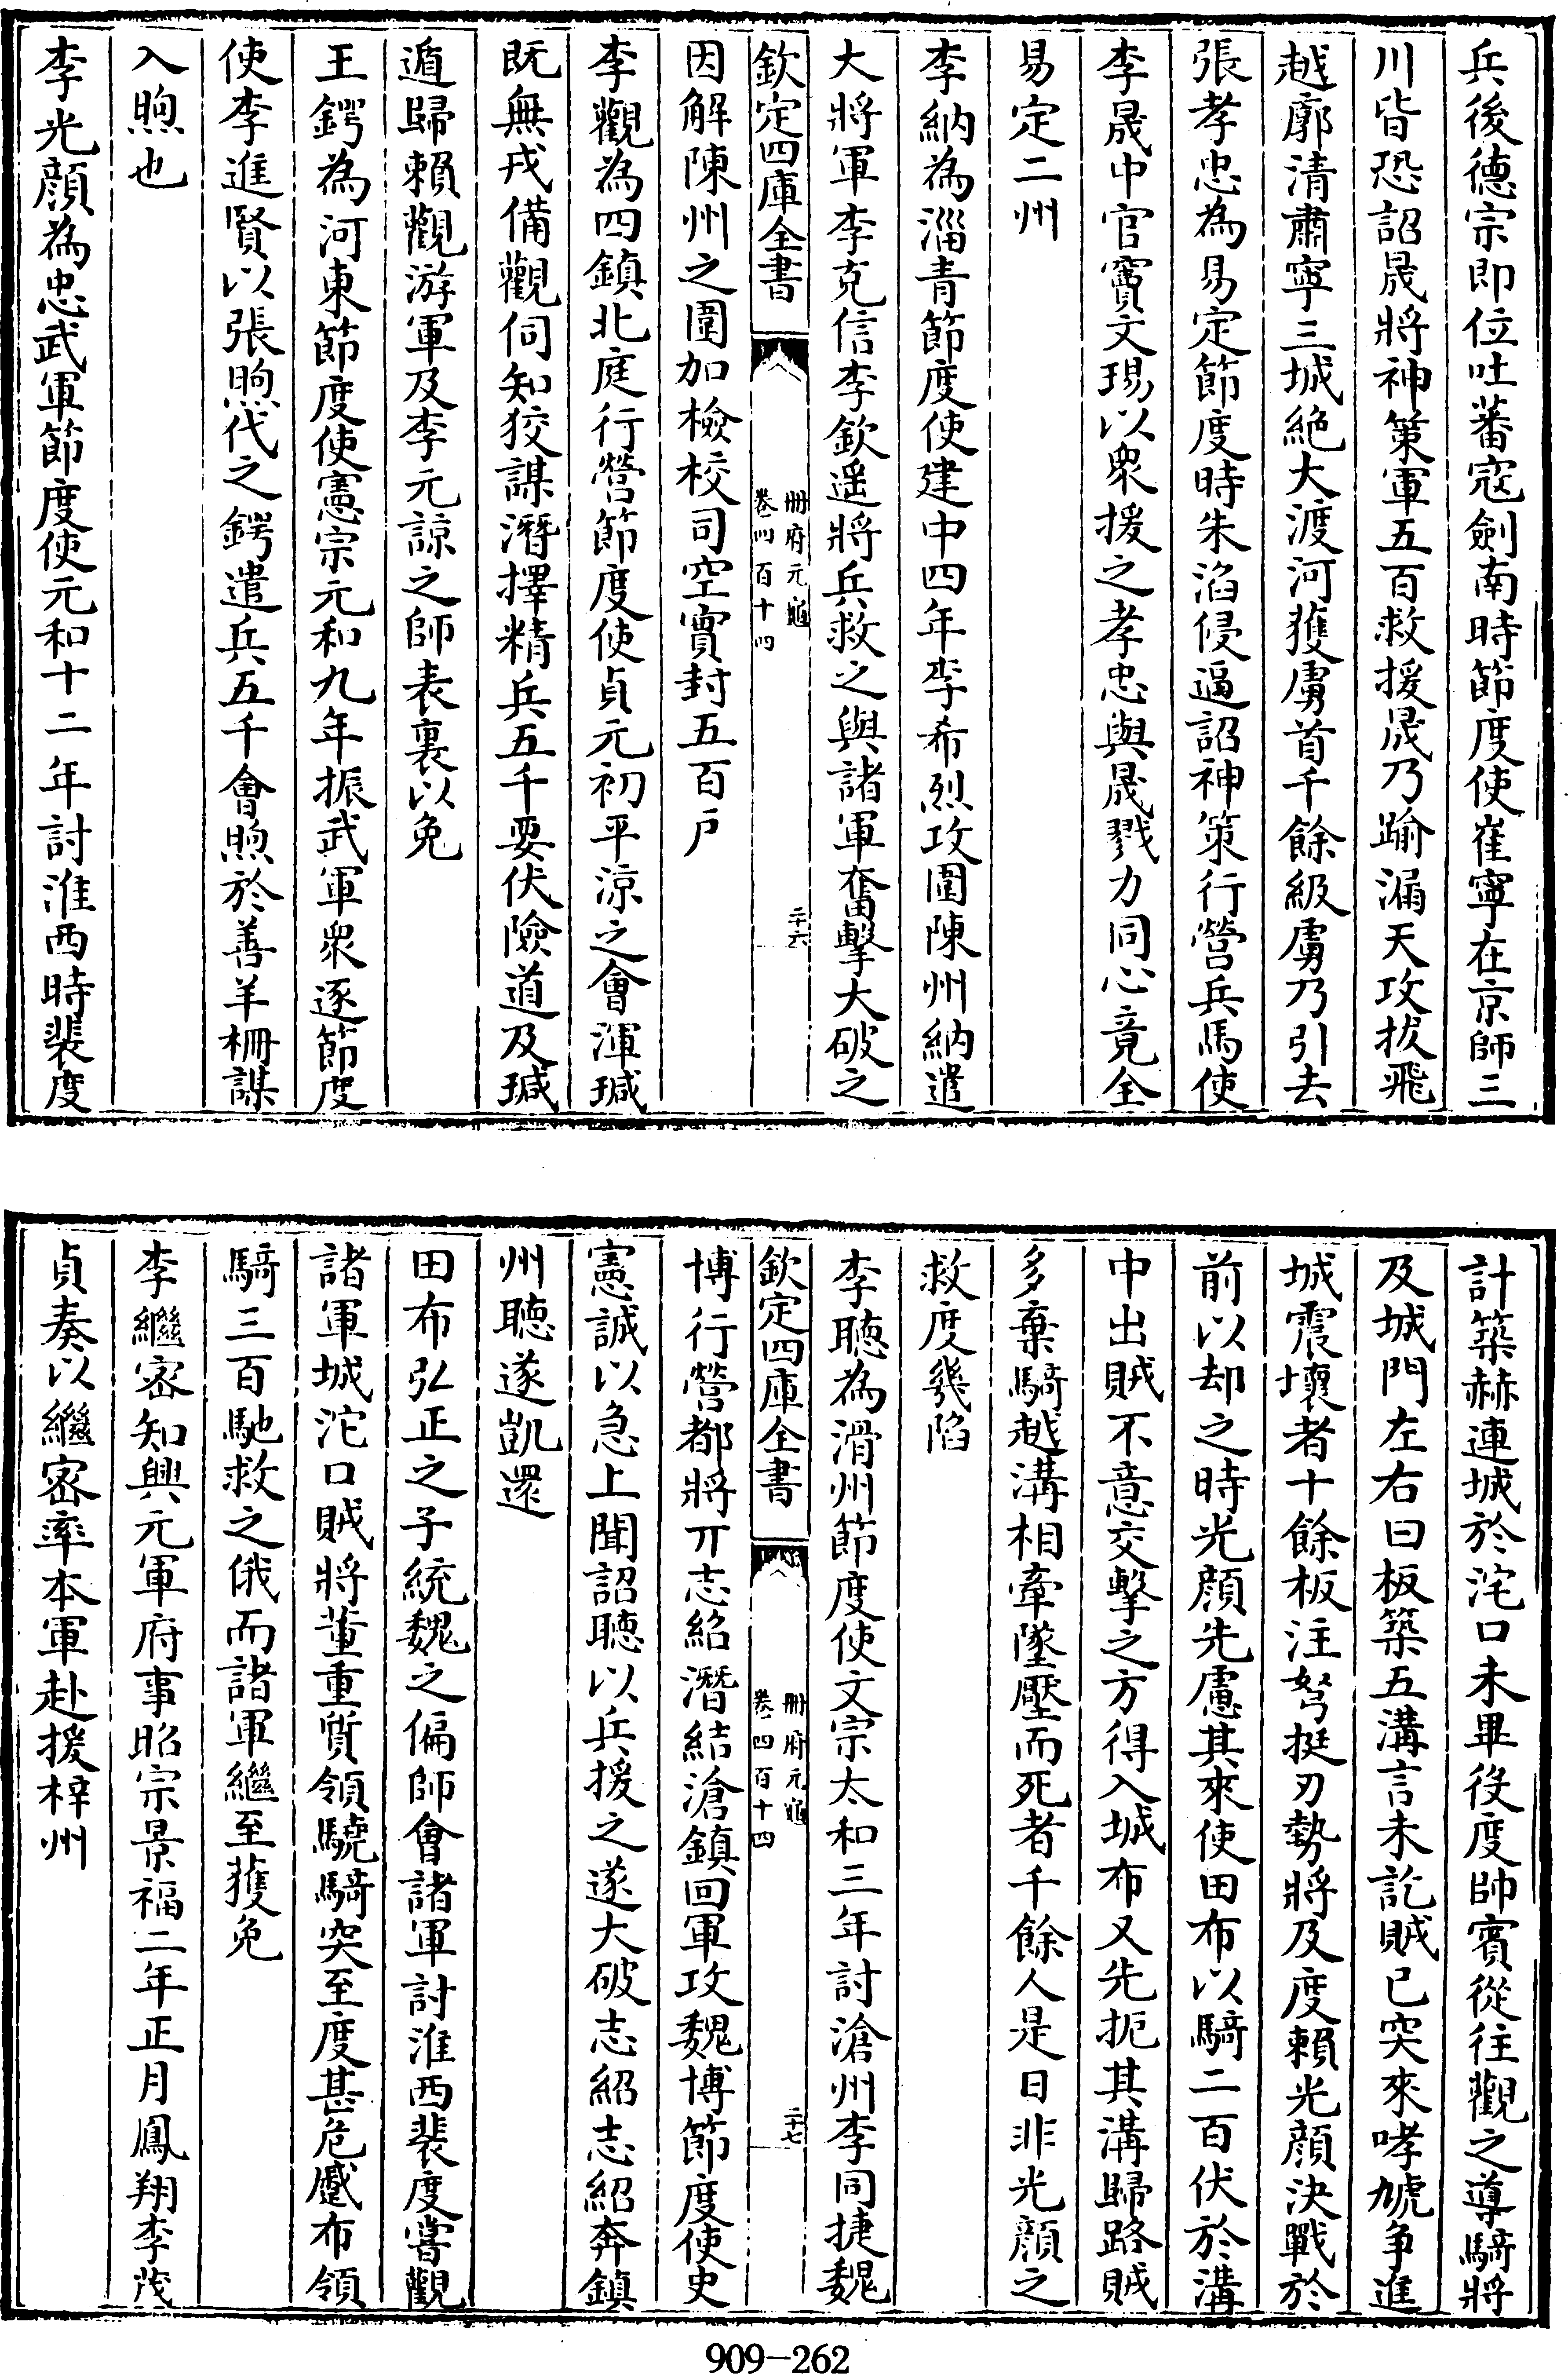 兵後德宗即位吐蕃寇劍南時節度使崔寧在京師三
川皆恐詔晟將神策軍五百救援晟乃踰漏天攻拔飛
越廓清肅寧三城絶大渡河獲虜首千餘級虜乃引去
張孝忠為易定節度時朱滔侵逼詔神策行營兵馬使
李晟中官竇文瑒以衆援之孝忠與晟戮力同心竟全
易定二州
李納為淄青節度使建中四年李希烈攻圍陳州納遣
大將軍李克信李欽遥將兵救之與諸軍奮擊大破之
欽定四庫全書
冊府元龜
卷四百十四
二十六
因解陳州之圍加檢校司空實封五百戶
李觀為四鎮北庭行營節度使貞元初平涼之會渾瑊
既無戎備觀伺知狡謀潛擇精兵五千要伏險道及瑊
遁歸賴觀游軍及李元諒之師表裏以免
王鍔為河東節度使憲宗元和九年振武軍衆逐節度
使李進賢以張煦代之鍔遣兵五千會煦於善羊柵謀
入煦也
李光顔為忠武軍節度使元和十二年討淮西時裴度
計築赫連城於沱口未畢役度帥賓從往觀之導騎將
及城門左右曰板築五溝言未訖賊已突來哮虓争進
城震壞者十餘板注弩挺刃勢將及度賴光顔決戰於
前以却之時光顔先慮其來使田布以騎二百伏於溝
中出賊不意交擊之方得入城布又先扼其溝歸路賊
多棄騎越溝相牽墜壓而死者千餘人是日非光顔之
救度幾陷
李聽為滑州節度使文宗太和三年討滄州李同捷魏
欽定四庫全書
冊府元龜
卷四百十四
二十七
博行營都將丌志紹潛結滄鎮回軍攻魏博節度使史
憲誠以急上聞詔聽以兵援之遂大破志紹志紹奔鎮
州聽遂凱還
田布弘正之子統魏之偏師會諸軍討淮西裴度嘗觀
諸軍城沱口賊將董重質領驍騎突至度甚危蹙布領
騎三百馳救之俄而諸軍繼至獲免
李繼密知興元軍府事昭宗景福二年正月鳳翔李茂
貞奏以繼密率本軍赴援梓州
909-262